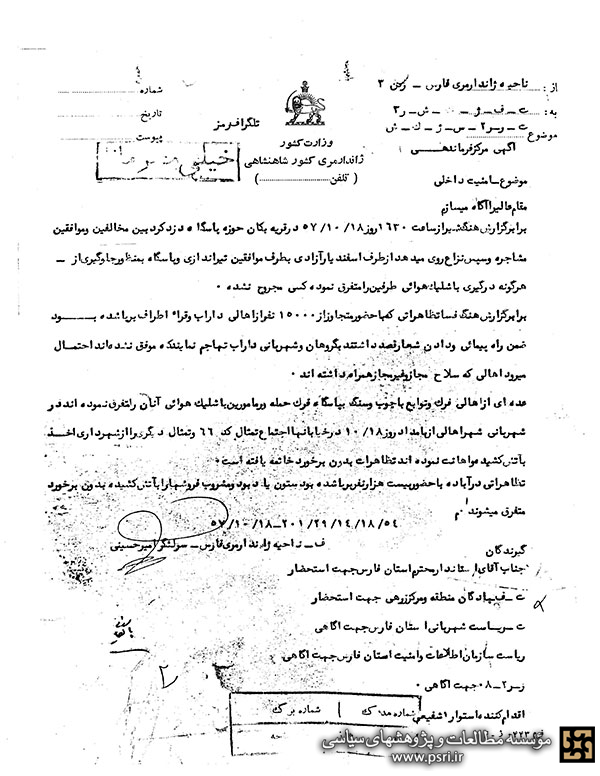 از : ناحیه ژاندارمری فارس - رکن ۳
به : ت - ف - ژ - ش - ر۳
ت - ر۲ - س - ژ - ک - ش
موضوع
آگهی مرکز فرماندهی
شماره
تاریخ
پیوست
تلگراف رمز
وزارت کشور
ژاندارمری کشور شاهنشاهی
( تلفن )
خیلی محرمانه
موضوع - امنیت داخلی
مقام عالیرا آگاه میسازم
برابر گزارش هنگ شیراز ساعت ۱۶۳۰ روز ۵۷/۱۰/۱۸ در قریه بکان حوزه پاسگاه دزدکرد بین مخالفین و موافقین
مشاجره و سپس نزاع روی میدهد از طرف اسفندیار آزادی بطرف موافقین تیراندازی و پاسگاه بمنظور جلوگیری از -
هرگونه درگیری با شلیک هوائی طرفین را متفرق نموده کسی مجروح نشده ۰
برابر گزارش هنگ فسا تظاهراتی که با حضور متجاوز از ۱۵۰۰۰ نفر از اهالی داراب و قراء اطراف برپا شده بـــود
ضمن راه پیمائی و دادن شعار قصد داشتند بگروهان و شهربانی داراب تهاجم نمایند که موفق نشده اند احتمال
میرود اهالی که سلاح مجاز و غیرمجاز همراه داشته اند ۰
عده ای از اهالی فرک و توابع با چوب و سنگ بپاسگاه فرک حمله ور مامورین با شلیک هوائی آنان را متفرق نموده اند در
شهربانی شهر اهالی از بامداد روز ۱۰/۱۸ در خیابانها اجتماع تمثال کد ۶۶ و تمثال دیگری را از شهرداری اخذ
بآتش کشیده و اهانت نموده اند تظاهرات بدون برخورد خاتمه یافته است ۰
تظاهراتی در آباده با حضور بیست هزار نفر برپا شده بود ستون یادبود و مشروب فروشیها را بآتش کشیده بدون برخورد
متفرق میشوند م
۵۷/۱۰/۱۸-۲۰۱/۲۹/۱۴/۱۸/۵۴
ف - ناحیه ژاندارمری فارس - سرلشگر امیرحسینی
گیرندگان
جناب آقای استاندار محترم استان فارس جهت استحضار
ت - ف پادگان منطقه و مرکز زرهی جهت استحضار
ت - ریاست شهربانی استان فارس جهت آگاهی
ریاست سازمان اطلاعات و امنیت استان فارس جهت آگاهی
ر۲ - ۰۸ جهت آگاهی ۰
اقدام کننده استوار ۱ شفیعی
شماره مدرک
شماره برگ
مؤسسه مطالعات و پژوهشهای سیاسی
www.psri.ir